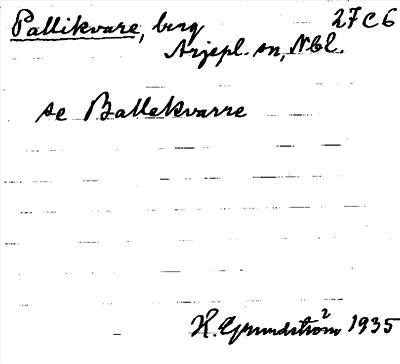 Pallikvare, berg 27 C 6
Arjepl. sn, Nbl.
se Ballekvarre
H. Grundström 2 1935